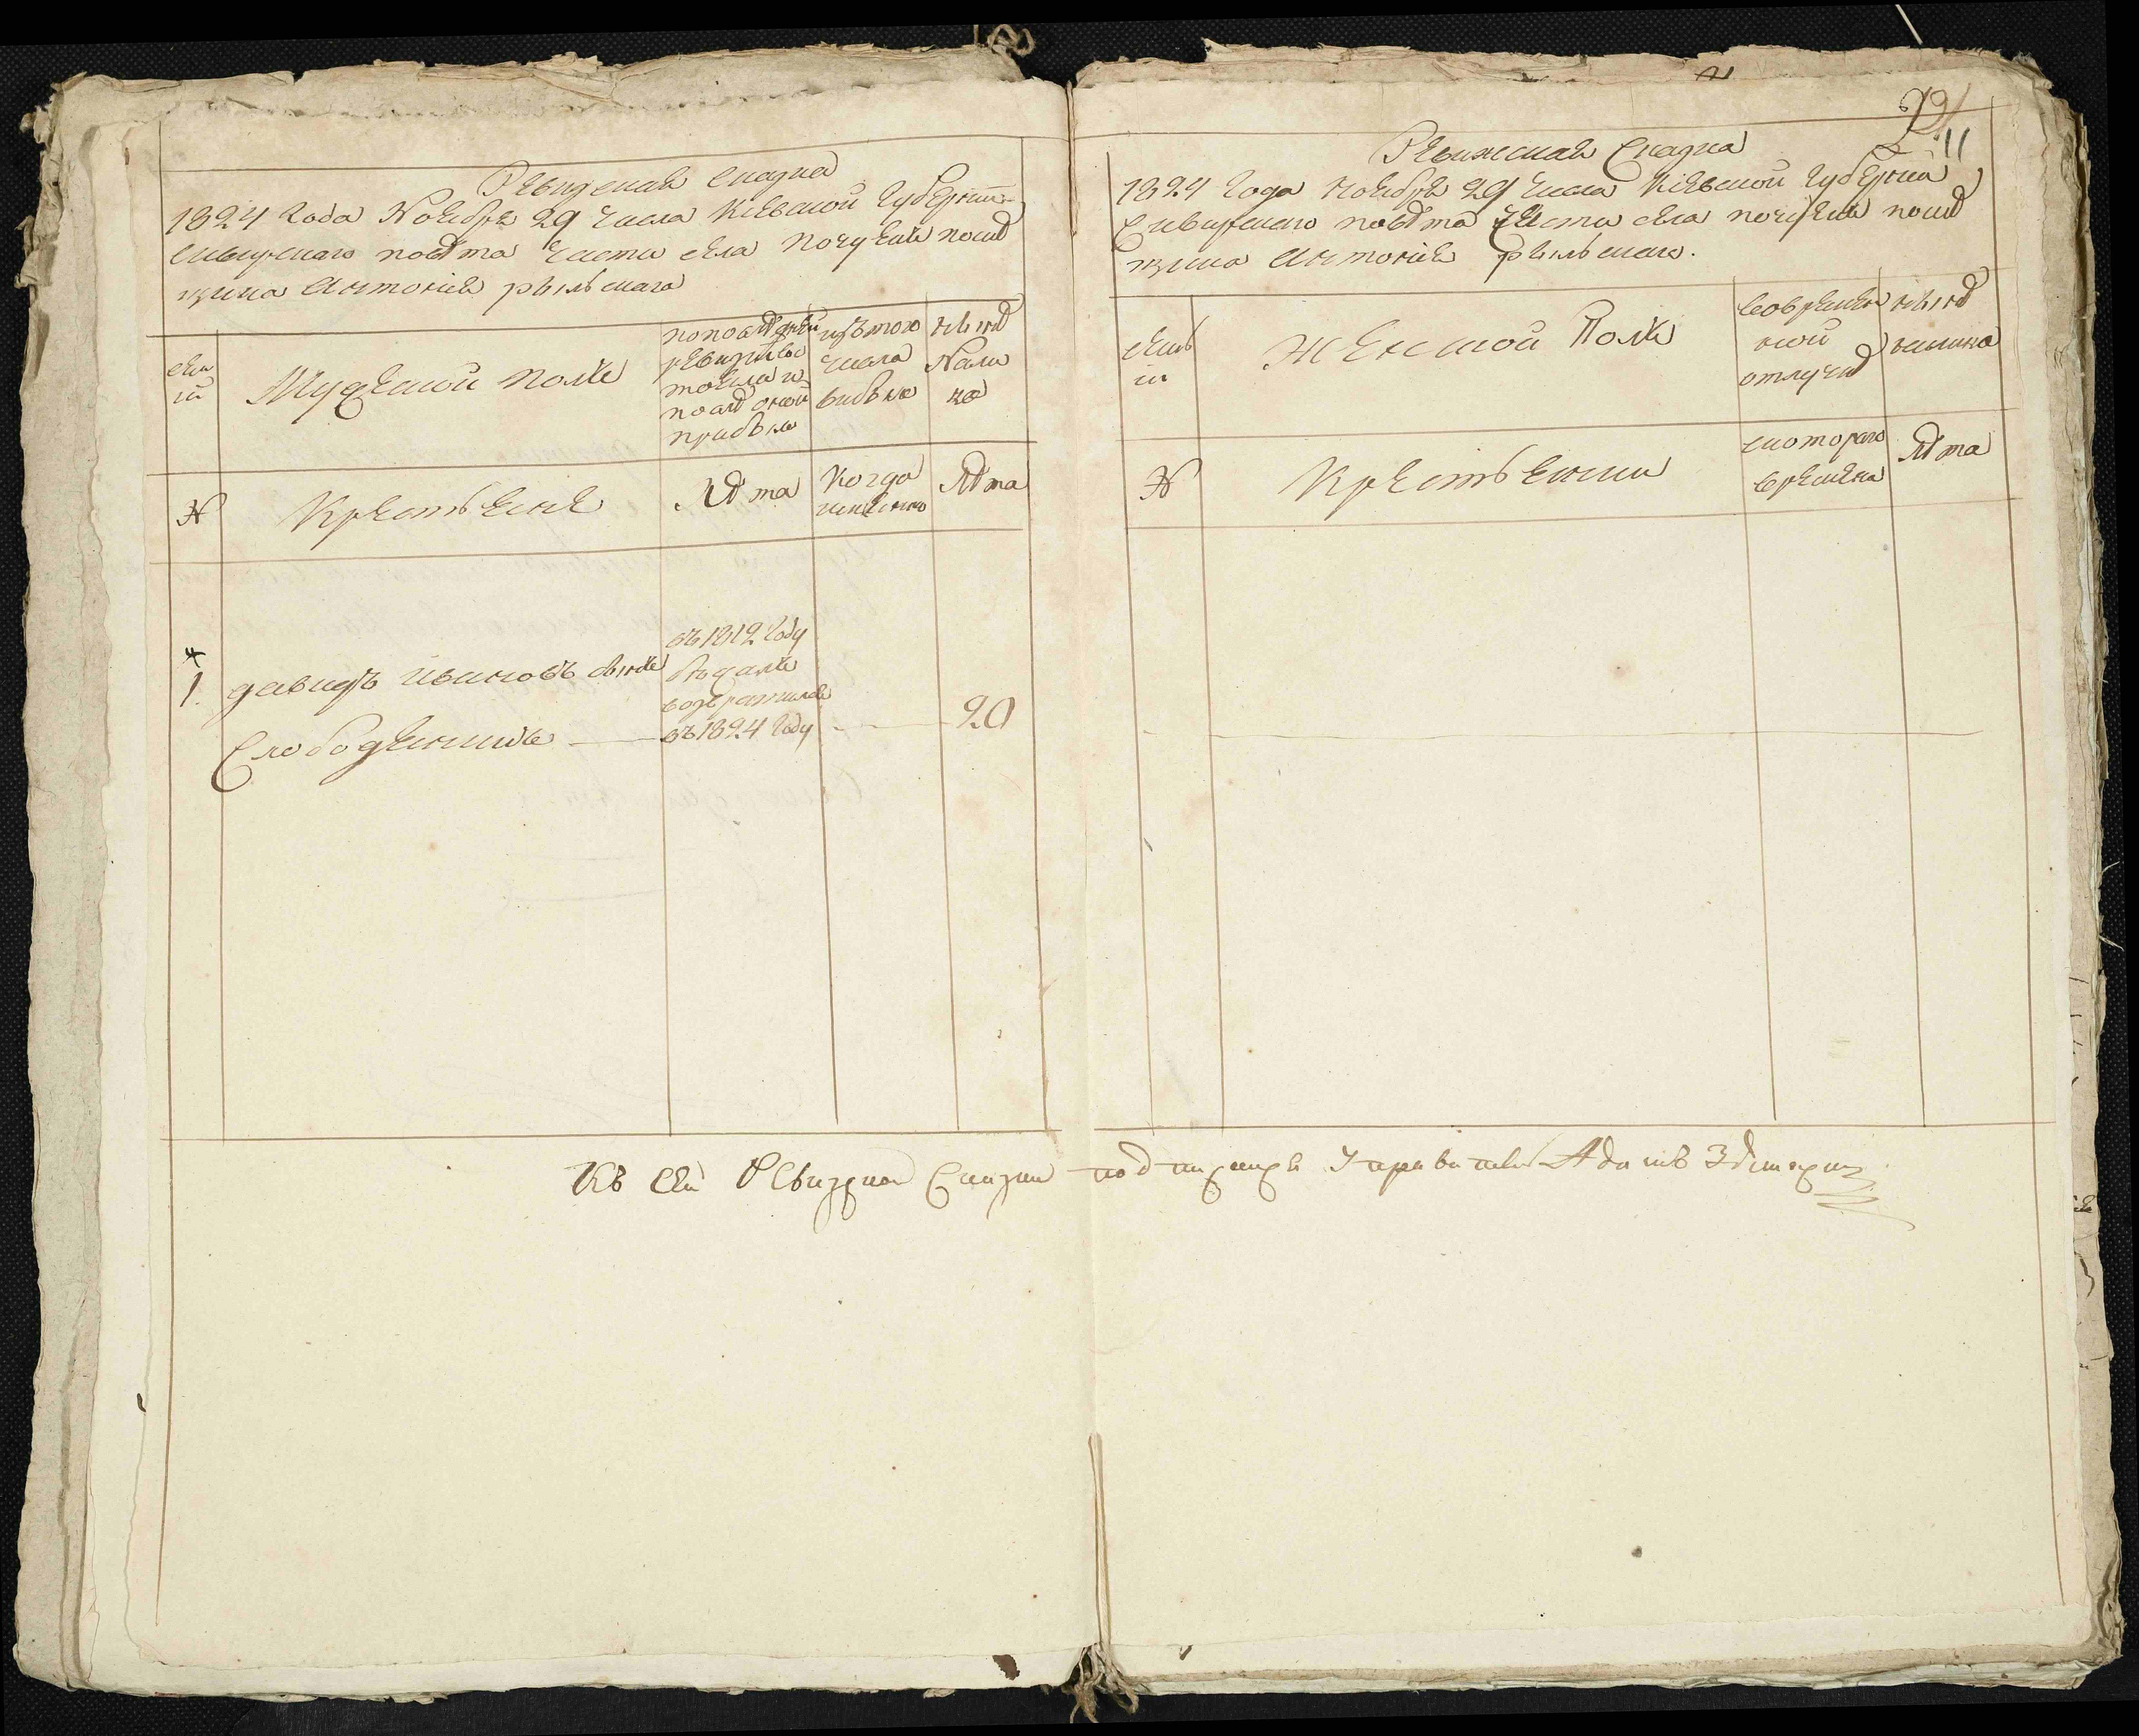 Ревизская сказка
1824 года Ноября 29 числа Киевской Губернии
Сквирского повѣта части села Почуекъ помѣ
щика Антония Рыльскаго
семи
й
Мужеской полъ
по послѣдней
ревизіи со
стояло и
послѣ оной
прибыло
изъ того
числа
выбыло
нынѣ
Нали
цо
№
Крестьяне
Лѣта
Когда
именно
Лѣта
1.
давидъ ивановъ сынъ
Слободяникъ
въ 1812 году
бѣжалъ
возвратился
въ 1824 году
20
11
Ревижская Сказка
1824 года ноября 29 числа Киевской губернии
Сквирского повѣта части села почуекъ помѣ
щика Антония рыльского.
семь
й
Женской Полъ
во временн
ной
отлучкѣ
нынѣ
налицо
№
Крестьянки
с котораго
времени
Лѣта
Къ сей Ревизской Сказки подписался Управитель Адамъ